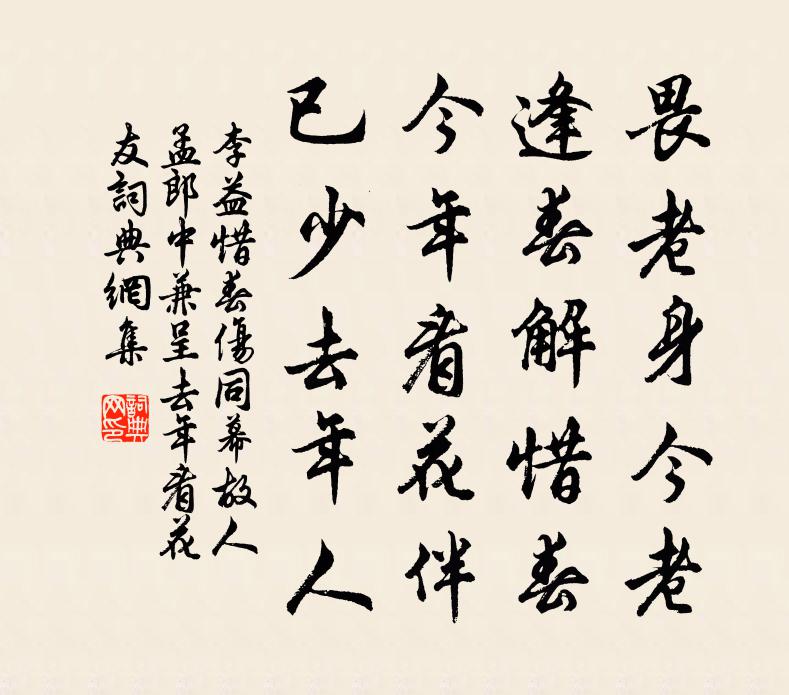 畏老身今老
逢春解惜春
今年看花伴
已少去年人
李益惜春傷同幕故人
孟郎中兼呈去年看花
友詞典網集
詞典
网印